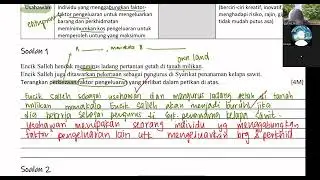 Usahawan
Individu yang menggabungkan faktor-
faktor pengeluaran untuk mengeluarkan
barang dan perkhidmatan
meminimumkan kos pengeluaran untuk
memperoleh untung yang maksimum
berciri-ciri kreatif, inovatif,
menghadapi risiko, rajin,
dan tidak mudah putus
Soalan 1
own land
Encik Salleh hendak mengurus ladang pertanian getah di tanah miliknya.
Encik Salleh juga ditawarkan pekerjaan sebagai pengurus di Syarikat penanaman kelapa sawit.
Terangkan perbezaan faktor pengeluaran yang terlibat dalam situasi di atas. [4M]
Encik Salleh sebagai usahawan dan mengurus ladang getah di tanah
milikan manakala Encik Salleh akan menjadi buruh jika
dia bekerja sebagai pengurus di syk. penanaman kelapa sawit.
Usahawan merupakan seorang individu yg menggabungkan
faktor pengeluaran lain utk mengeluarkan brg & perkhid
Soalan 2